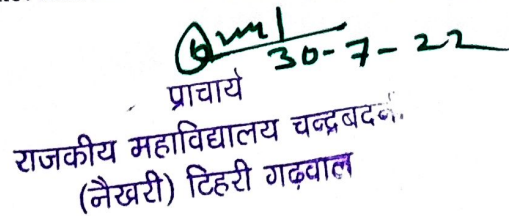 30-7-22
प्राचार्य
राजकीय महाविद्यालय चन्द्रबदनी
(नैखरी) टिहरी गढ़वाल